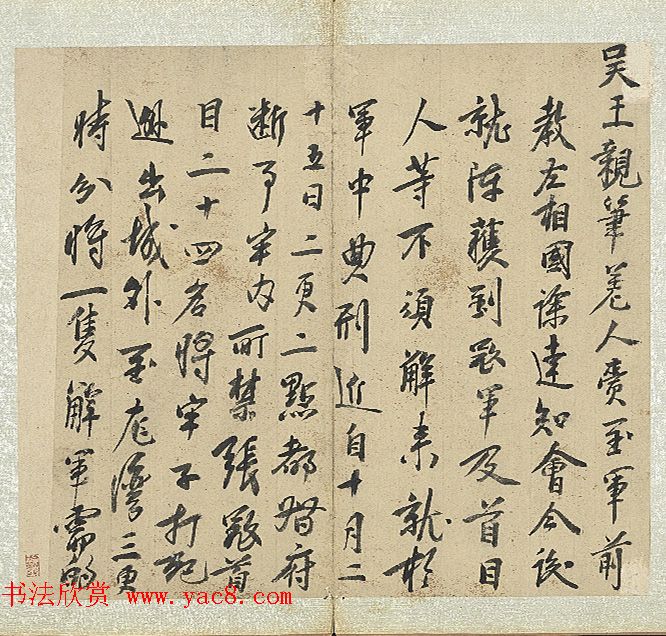 吴王親筆差人賫至軍前
教左相國徐達知會今後
就陣獲到寇軍及首目
人等不須解来就於
軍中典刑近自十月二
十五日二更二點都督府
断事牢内所禁張寇首
目二十四名將牢子打死
越出城外至龙灣三更
時分將一隻解軍需船
书法欣赏 www.yac8.com